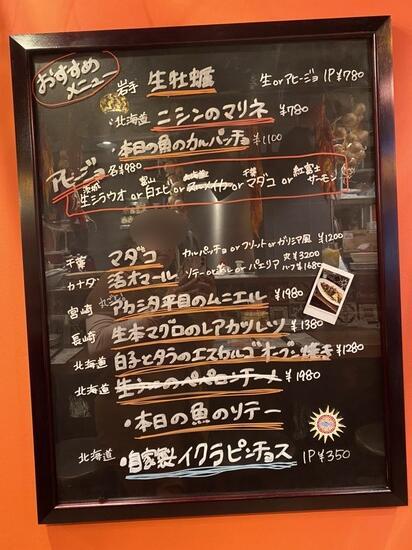 おすすめ
メニュー
岩手 生牡蠣 生orアヒージョ 1P¥780
・北海道 ニシンのマリネ ¥780
本日の魚のカルパッチョ ¥1100
アヒージョ 各¥980
茨城 富山 北海道 千葉 紅富士
生シラウオ or 白エビ or or マダコ or サーモン
千葉 マダコ カルパッチョ or フリット or ガリシア風 ¥1200
カナダ 活オマール ソテー or 蒸し or パエリア 丸¥3200 ハーフ¥1680
宮崎 アカシタ平目のムニエル ¥1980
長崎 生本マグロのレアカツレツ ¥1380
北海道 白子とタラのエスカルゴオーブン焼き ¥1280
北海道 生うにのペペロンチーノ ¥1980
・本日の魚のソテー
北海道 ・自家製イクラピンチョス 1P¥350